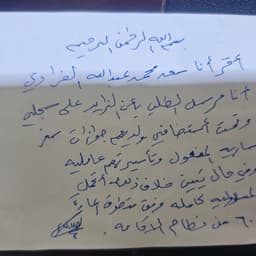 بسم الله الرحمن الرحيم
أقر أنا سعد محمد عبدالله الفرادي
أنا مرسل الطلب بأن الزايد على سجلي
وقمت أستضافتي ولديهم جوازات سفر
سارية المفعول وتأشيرتهم عائلية
وفي حال تبين خلاف ذلك أتحمل
المسؤولية كاملة وفق منطوق المادة
٦٠ من نظام الاقامة